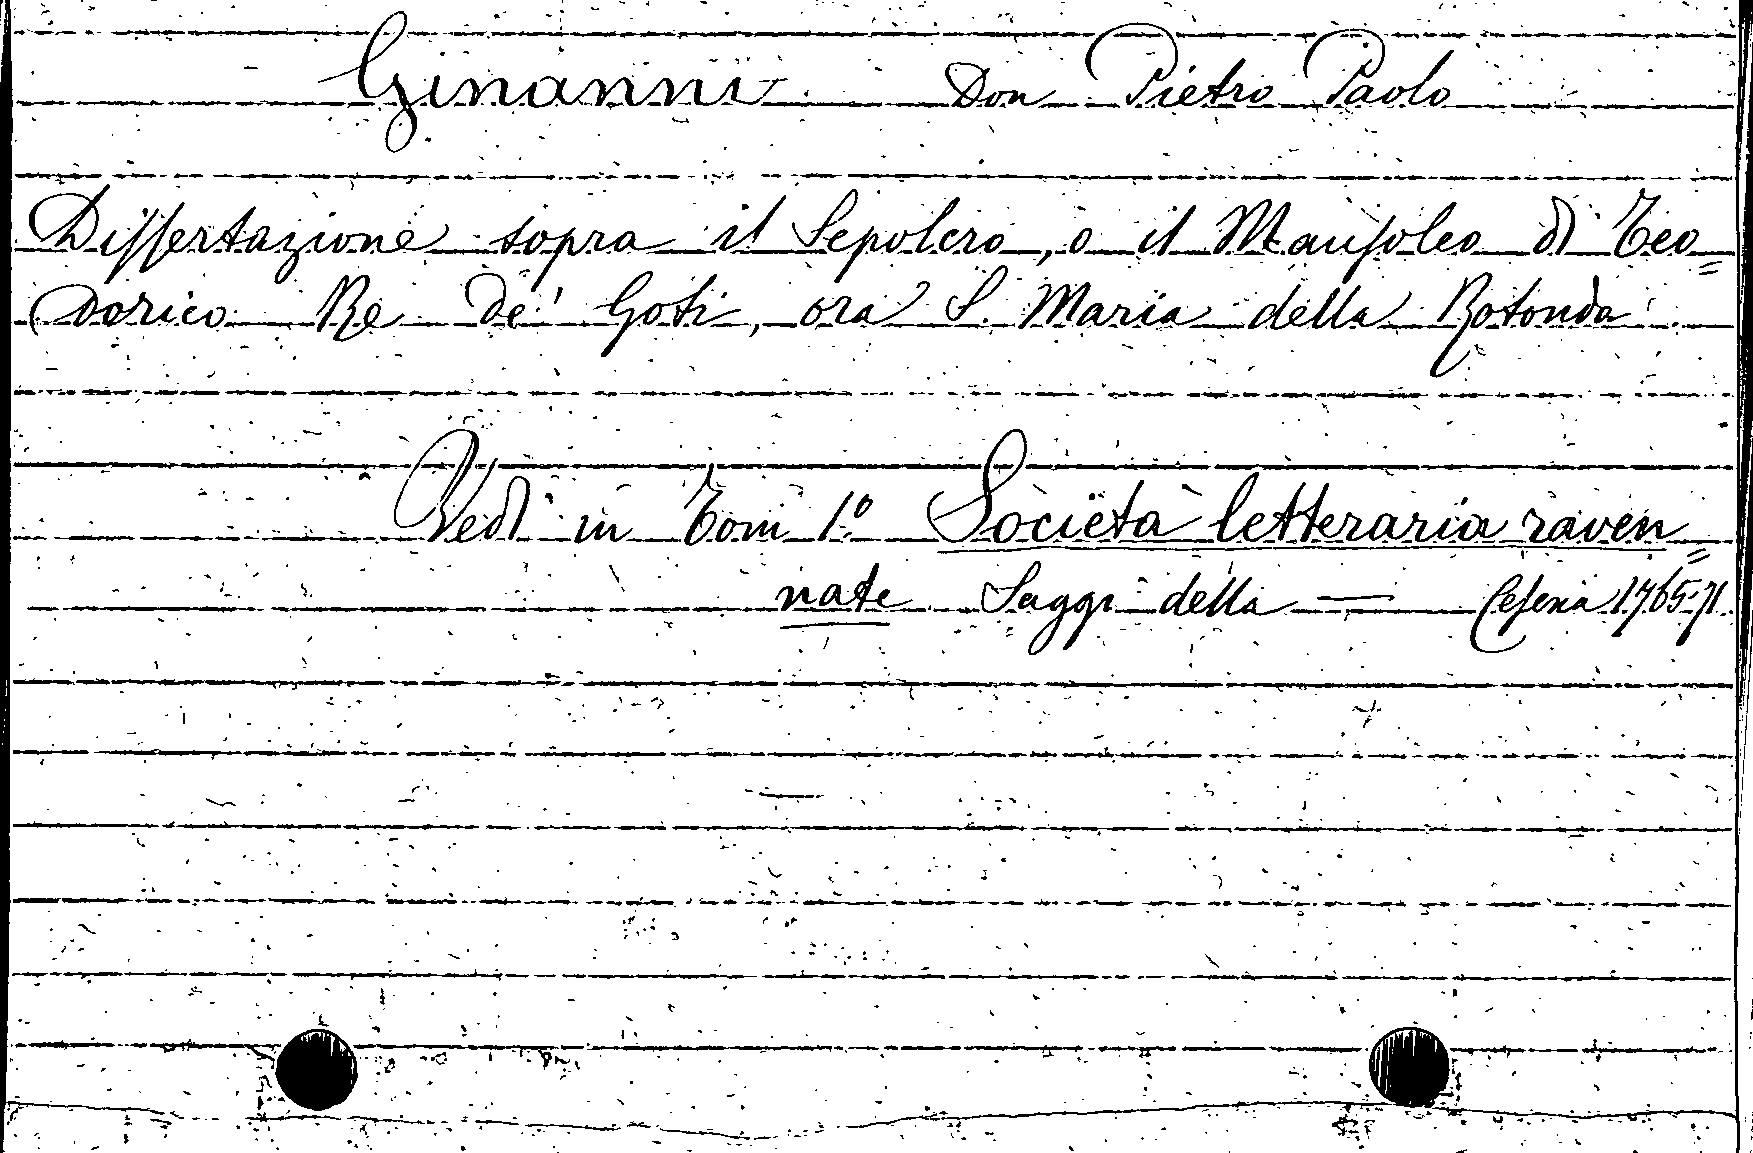 Ginanni Don Pietro Paolo
Dissertazione sopra il Sepolcro, o il Mausoleo di Teo=
dorico Re de' Goti, ora S. Maria della Rotonda.
Vedi in Tom 1.º Società letteraria raven=
nate Saggi della — Cesena 1765-71.